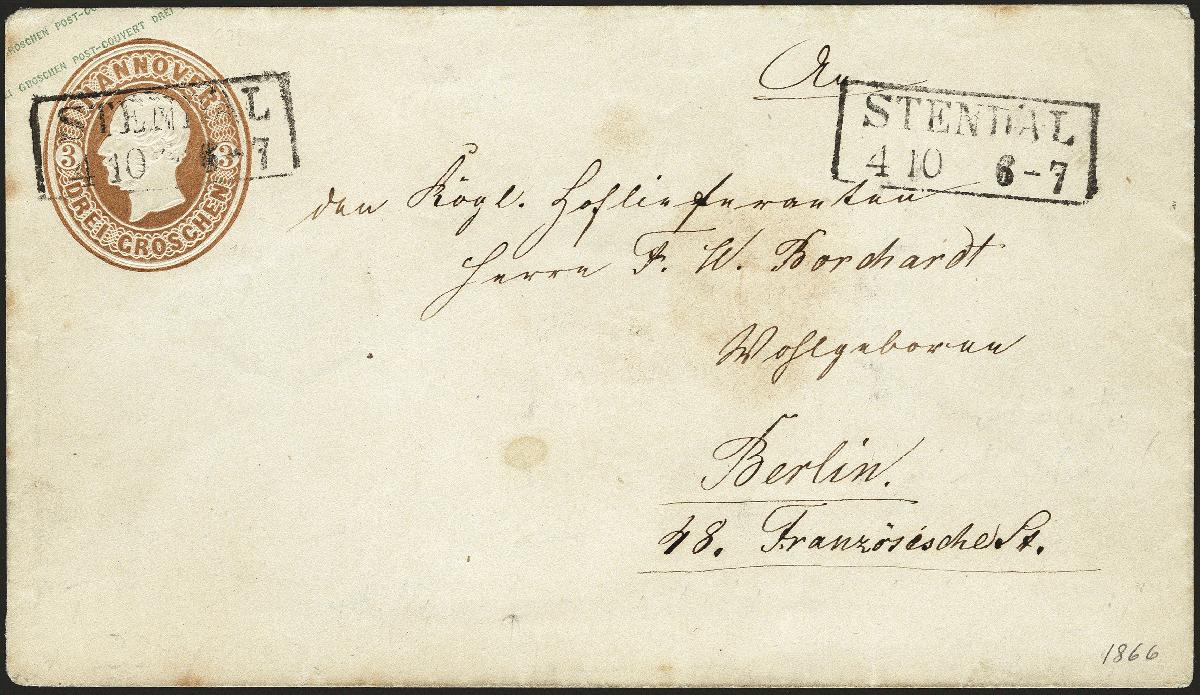 GROSCHEN POST-COUVERT DREI
EI GROSCHEN POST-COUVERT DREI
HANNOVER
3 3
DREI GROSCHEN
STENDAL
4 10 6-7
STENDAL
4 10 6-7
An
den Kögl. Hoflieferanten
Herrn F. W. Borchardt
Wohlgeboren
Berlin.
48. Französische St.
1866